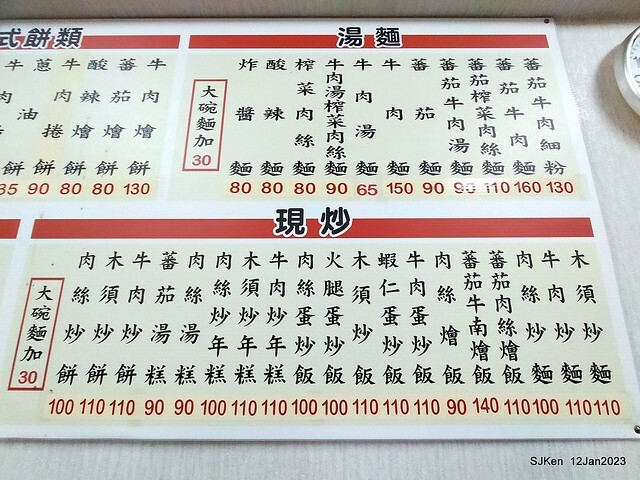 式餅類
蔥油餅 35
牛肉捲餅 90
酸辣燴餅 80
蕃茄燴餅 80
牛肉燴餅 130
湯麵
大碗麵加30
炸醬麵 80
酸辣麵 80
榨菜肉絲麵 80
牛肉湯榨菜肉絲麵 90
牛肉湯麵 65
牛肉麵 150
蕃茄麵 90
蕃茄牛肉湯麵 90
蕃茄榨菜肉絲麵 110
蕃茄牛肉麵 160
蕃茄牛肉細粉 130
現炒
大碗麵加30
肉絲炒餅 100
木須炒餅 110
牛肉炒餅 110
蕃茄湯糕 90
肉絲湯糕 90
肉絲炒年糕 100
木須炒年糕 110
牛肉炒年糕 110
肉絲蛋炒飯 100
火腿蛋炒飯 100
木須炒飯 110
蝦仁蛋炒飯 110
牛肉蛋炒飯 110
肉絲燴飯 90
蕃茄牛南燴飯 140
蕃茄肉絲燴飯 110
肉絲炒麵 100
牛肉炒麵 110
木須炒麵 110
SJKen 12Jan2023